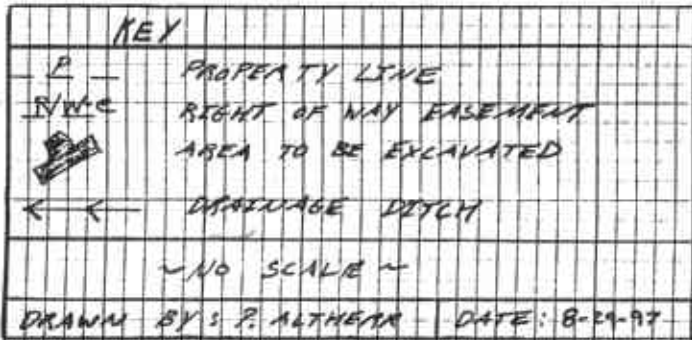 KEY
P PROPERTY LINE
R/W-E RIGHT OF WAY EASEMENT
AREA TO BE EXCAVATED
DRAINAGE DITCH
~ NO SCALE ~
DRAWN BY: P. DATE: